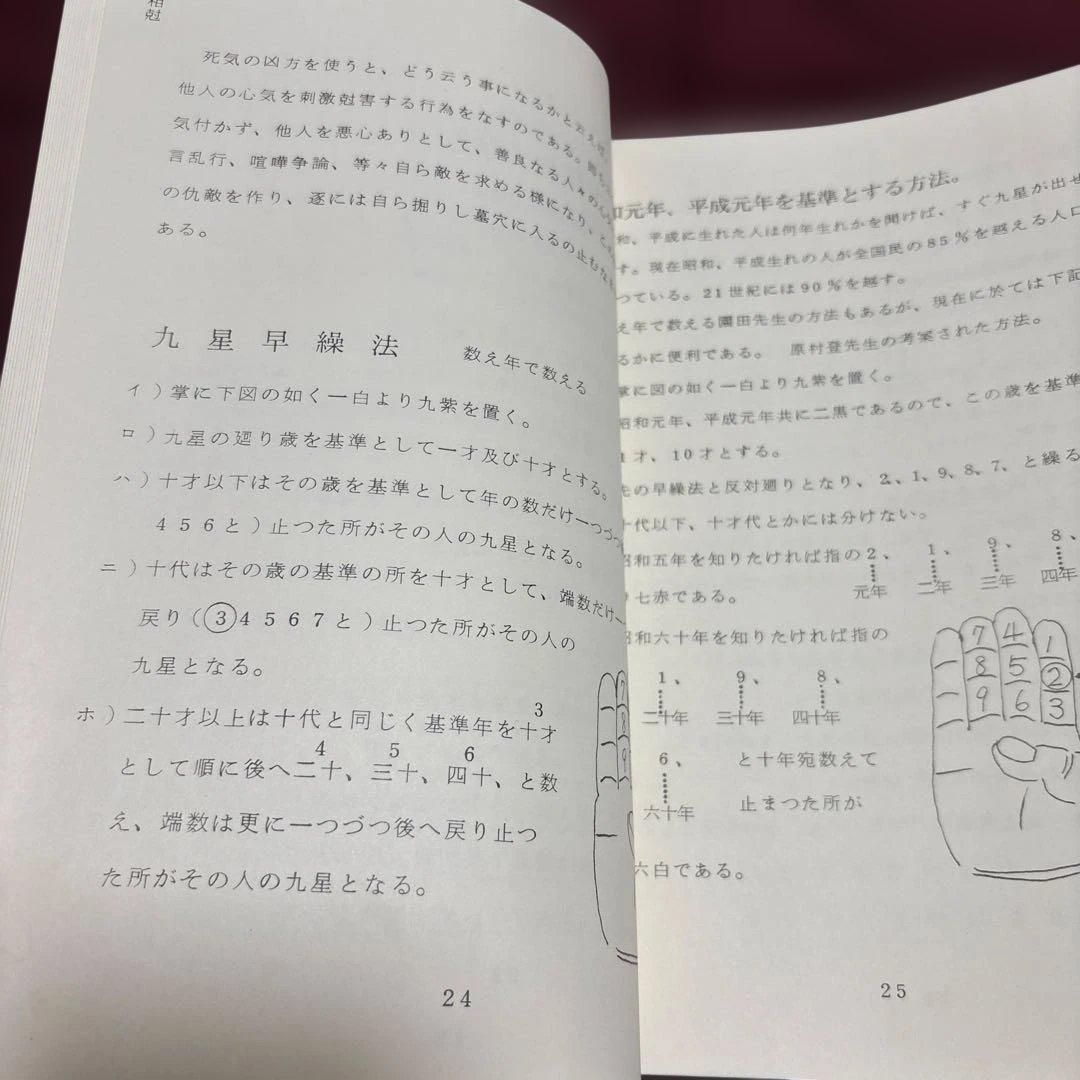 相尅
死気の凶方を使うと、どう云う事になるかと云えば、
他人の心気を刺激尅害する行為をなすのである。
気付かず、他人を悪心ありとして、善良なる人々の心
言乱行、喧嘩争論、等々自ら敵を求める様になり、
の仇敵を作り、逐には自ら掘りし墓穴に入るの止むな
ある。
九星早繰法 数え年で数える
イ)掌に下図の如く一白より九紫を置く。
ロ)九星の廻り歳を基準として一才及び十才とする。
ハ)十才以下はその歳を基準として年の数だけ一つづつ
456と)止つた所がその人の九星となる。
ニ)十代はその歳の基準の所を十才として、端数だけ一
戻り(③4567と)止つた所がその人の
九星となる。
3
ホ)二十才以上は十代と同じく基準年を十才
4 5 6
として順に後へ二十、三十、四十、と数
え、端数は更に一つづつ後へ戻り止つ
た所がその人の九星となる。
7
8
9
24
和元年、平成元年を基準とする方法。
和、平成に生れた人は何年生れかを聞けば、すぐ九星が出せ
す。現在昭和、平成生れの人が全国民の85%を越える人口
つている。21世紀には90%を越す。
え年で数える園田先生の方法もあるが、現在に於ては下記
るかに便利である。 原村登先生の考案された方法。
掌に図の如く一白より九紫を置く。
昭和元年、平成元年共に二黒であるので、この歳を基準
1才、10才とする。
先の早繰法と反対廻りとなり、2、1、9、8、7、と繰る
十代以下、十才代とかには分けない。
昭和五年を知りたければ指の2、 1、 9、 8、
元年 二年 三年 四年
七赤である。
昭和六十年を知りたければ指の
1、 9、 8、
二十年 三十年 四十年
6、 と十年宛数えて
六十年 止まつた所が
六白である。
7 4 1
8 5 ②
9 6 3
25